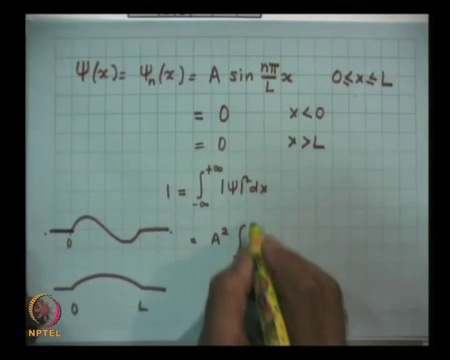 Ψ(x) = Ψn(x) = A sin nπ/L x 0≤x≤L
= 0 x<0
= 0 x>L
1 = ∫-∞+∞ |Ψ|² dx
= A² ∫
0
0 L
NPTEL